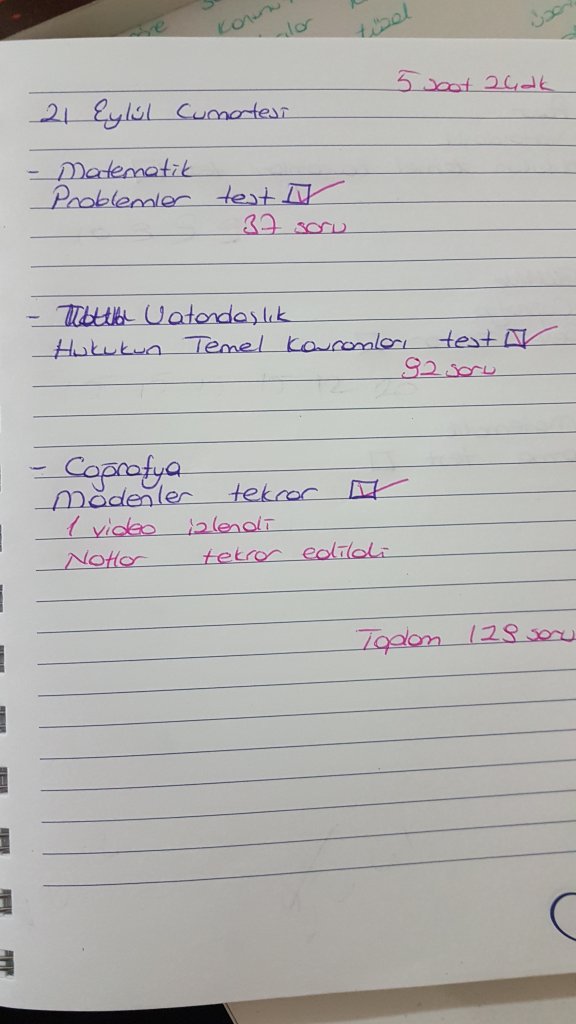 5 saat 24dk
21 Eylül Cumartesi
- Matematik
Problemler test
37 soru
- Vatandaşlık
Hukukun Temel Kavramları test
92 soru
- Coğrafya
Madenler tekrar
1 video izlendi
Notlar tekrar edildi
Toplam 129 soru